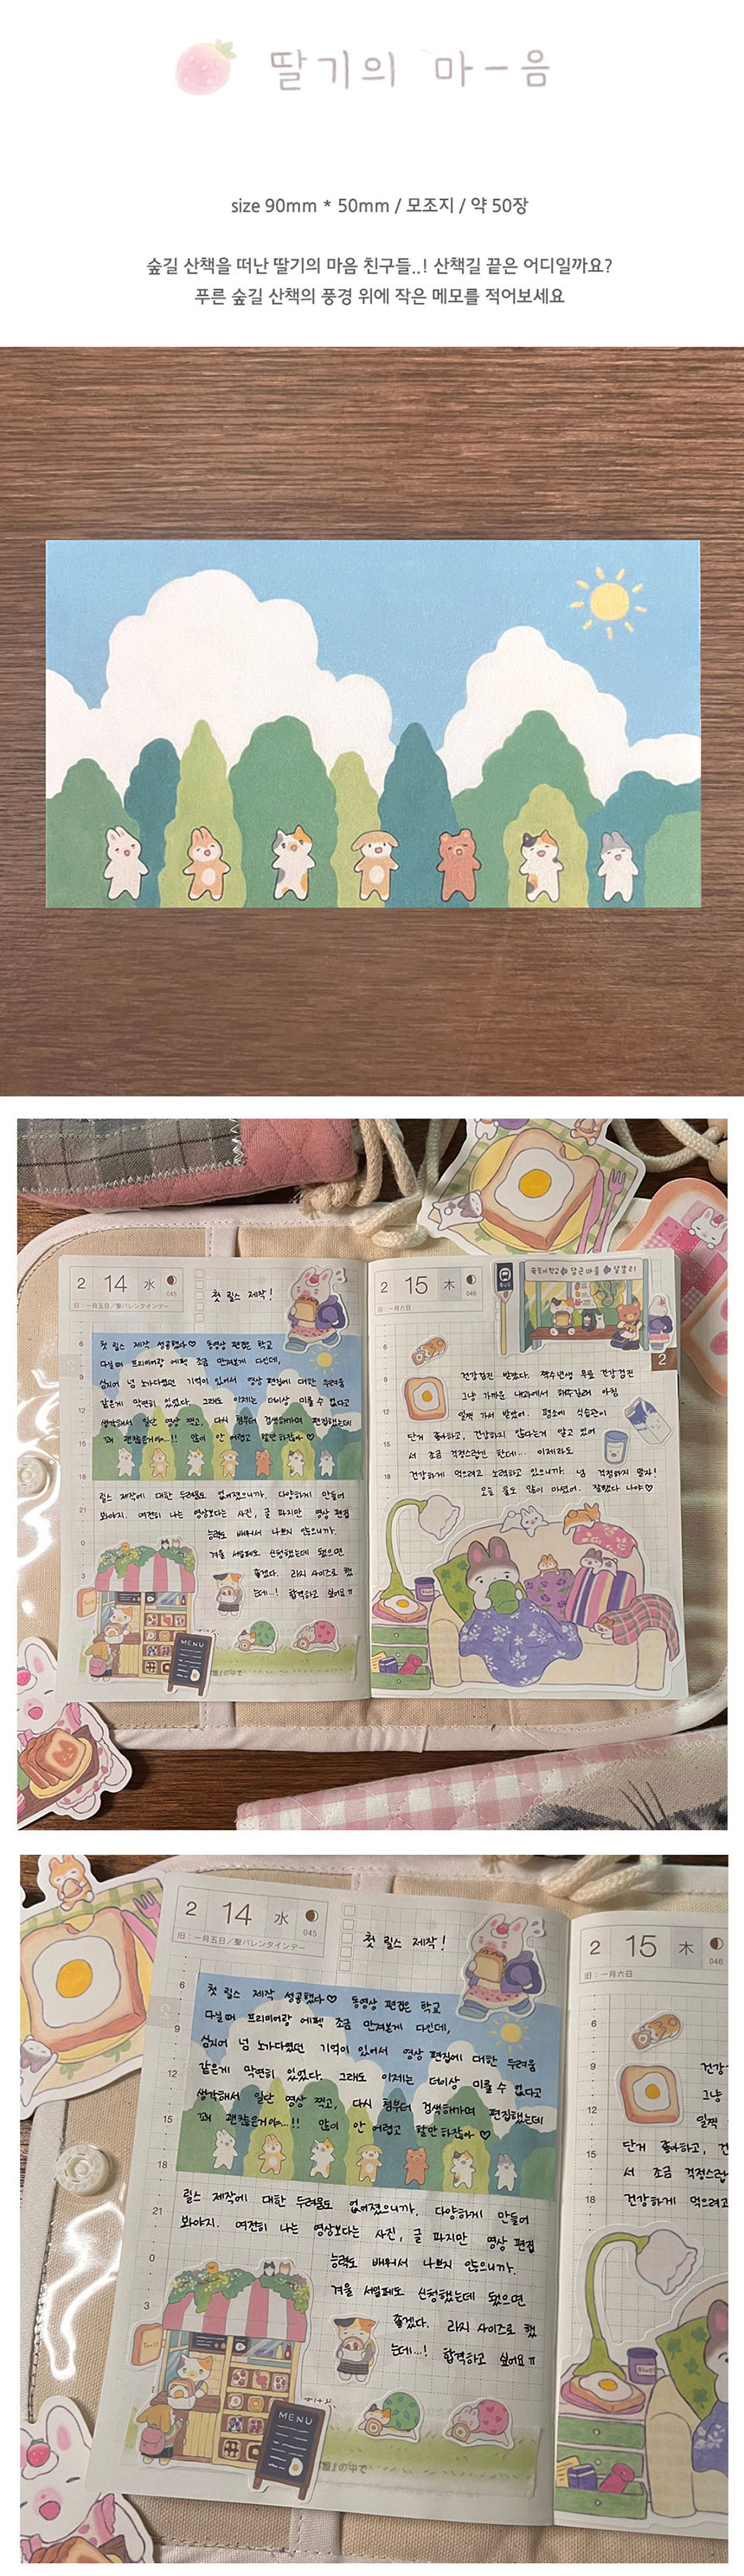 딸기의 마음
size 90mm * 50mm / 모조지 / 약 50장
숲길 산책을 떠난 딸기의 마음 친구들..! 산책길 끝은 어디일까요?
푸른 숲길 산책의 풍경 위에 작은 메모를 적어보세요
2 14 水 045
旧:一月五日/聖バレンタインデー
첫 릴스 제작!
6
9
12
15
18
21
0
3
첫 릴스 제작 성공했다♡ 동영상 편집은 학교
다닐때 프리미어랑 에펙 조금 만져본게 다인데,
심지어 넘 노가다였던 기억이 있어서 영상 편집에 대한 두려움
같은게 막연히 있었다. 그래도 이제는 더이상 미룰 수 없다고
생각해서 일단 영상 찍고, 다시 첨부터 검색해가며 편집했는데
꽤 괜찮은거야...!! 많이 안 어렵고 할만하잖아 ♡
릴스 제작에 대한 두려움도 없어졌으니까. 다양하게 만들어
봐야지. 여전히 나는 영상보다는 사진, 글 파지만 영상 편집
능력도 배워서 나쁘지 않으니까.
겨울 서일페도 신청했는데 됐으면
좋겠다. 라지 사이즈로 했
는데...! 합격하고 싶어요 ㅠ
MENU
の中で
2 15 木 046
旧:一月六日
2
6
9
12
15
18
건강검진 받았다. 짝수년생 무료 건강검진
그냥 가까운 내과에서 해주길래 아침
일찍 가서 받았어. 평소에 식습관이
단거 좋아하고, 건강하지 않다는게 알고 있어
서 조금 걱정스럽긴 한데... 이제라도
건강하게 먹으려고 노력하고 있으니까 넘 걱정하지 말자!
오늘 물도 많이 마셨어. 잘했다 나야♡
2 14 水 045
旧:一月五日/聖バレンタインデー
첫 릴스 제작!
6
9
12
15
18
21
0
3
첫 릴스 제작 성공했다♡ 동영상 편집은 학교
다닐때 프리미어랑 에펙 조금 만져본게 다인데,
심지어 넘 노가다였던 기억이 있어서 영상 편집에 대한 두려움
같은게 막연히 있었다. 그래도 이제는 더이상 미룰 수 없다고
생각해서 일단 영상 찍고, 다시 첨부터 검색해가며 편집했는데
꽤 괜찮은거야...!! 많이 안 어렵고 할만하잖아 ♡
릴스 제작에 대한 두려움도 없어졌으니까. 다양하게 만들어
봐야지. 여전히 나는 영상보다는 사진, 글 파지만 영상 편집
능력도 배워서 나쁘지 않으니까.
겨울 서일페도 신청했는데 됐으면
좋겠다. 라지 사이즈로 했
는데...! 합격하고 싶어요 ㅠ
Toast
MENU
の中で
2 15 木 046
旧:一月六日
6
9
12
15
18
건강
그냥
일찍
단거 좋아하고, 건
서 조금 걱정스럽
건강하게 먹으려고